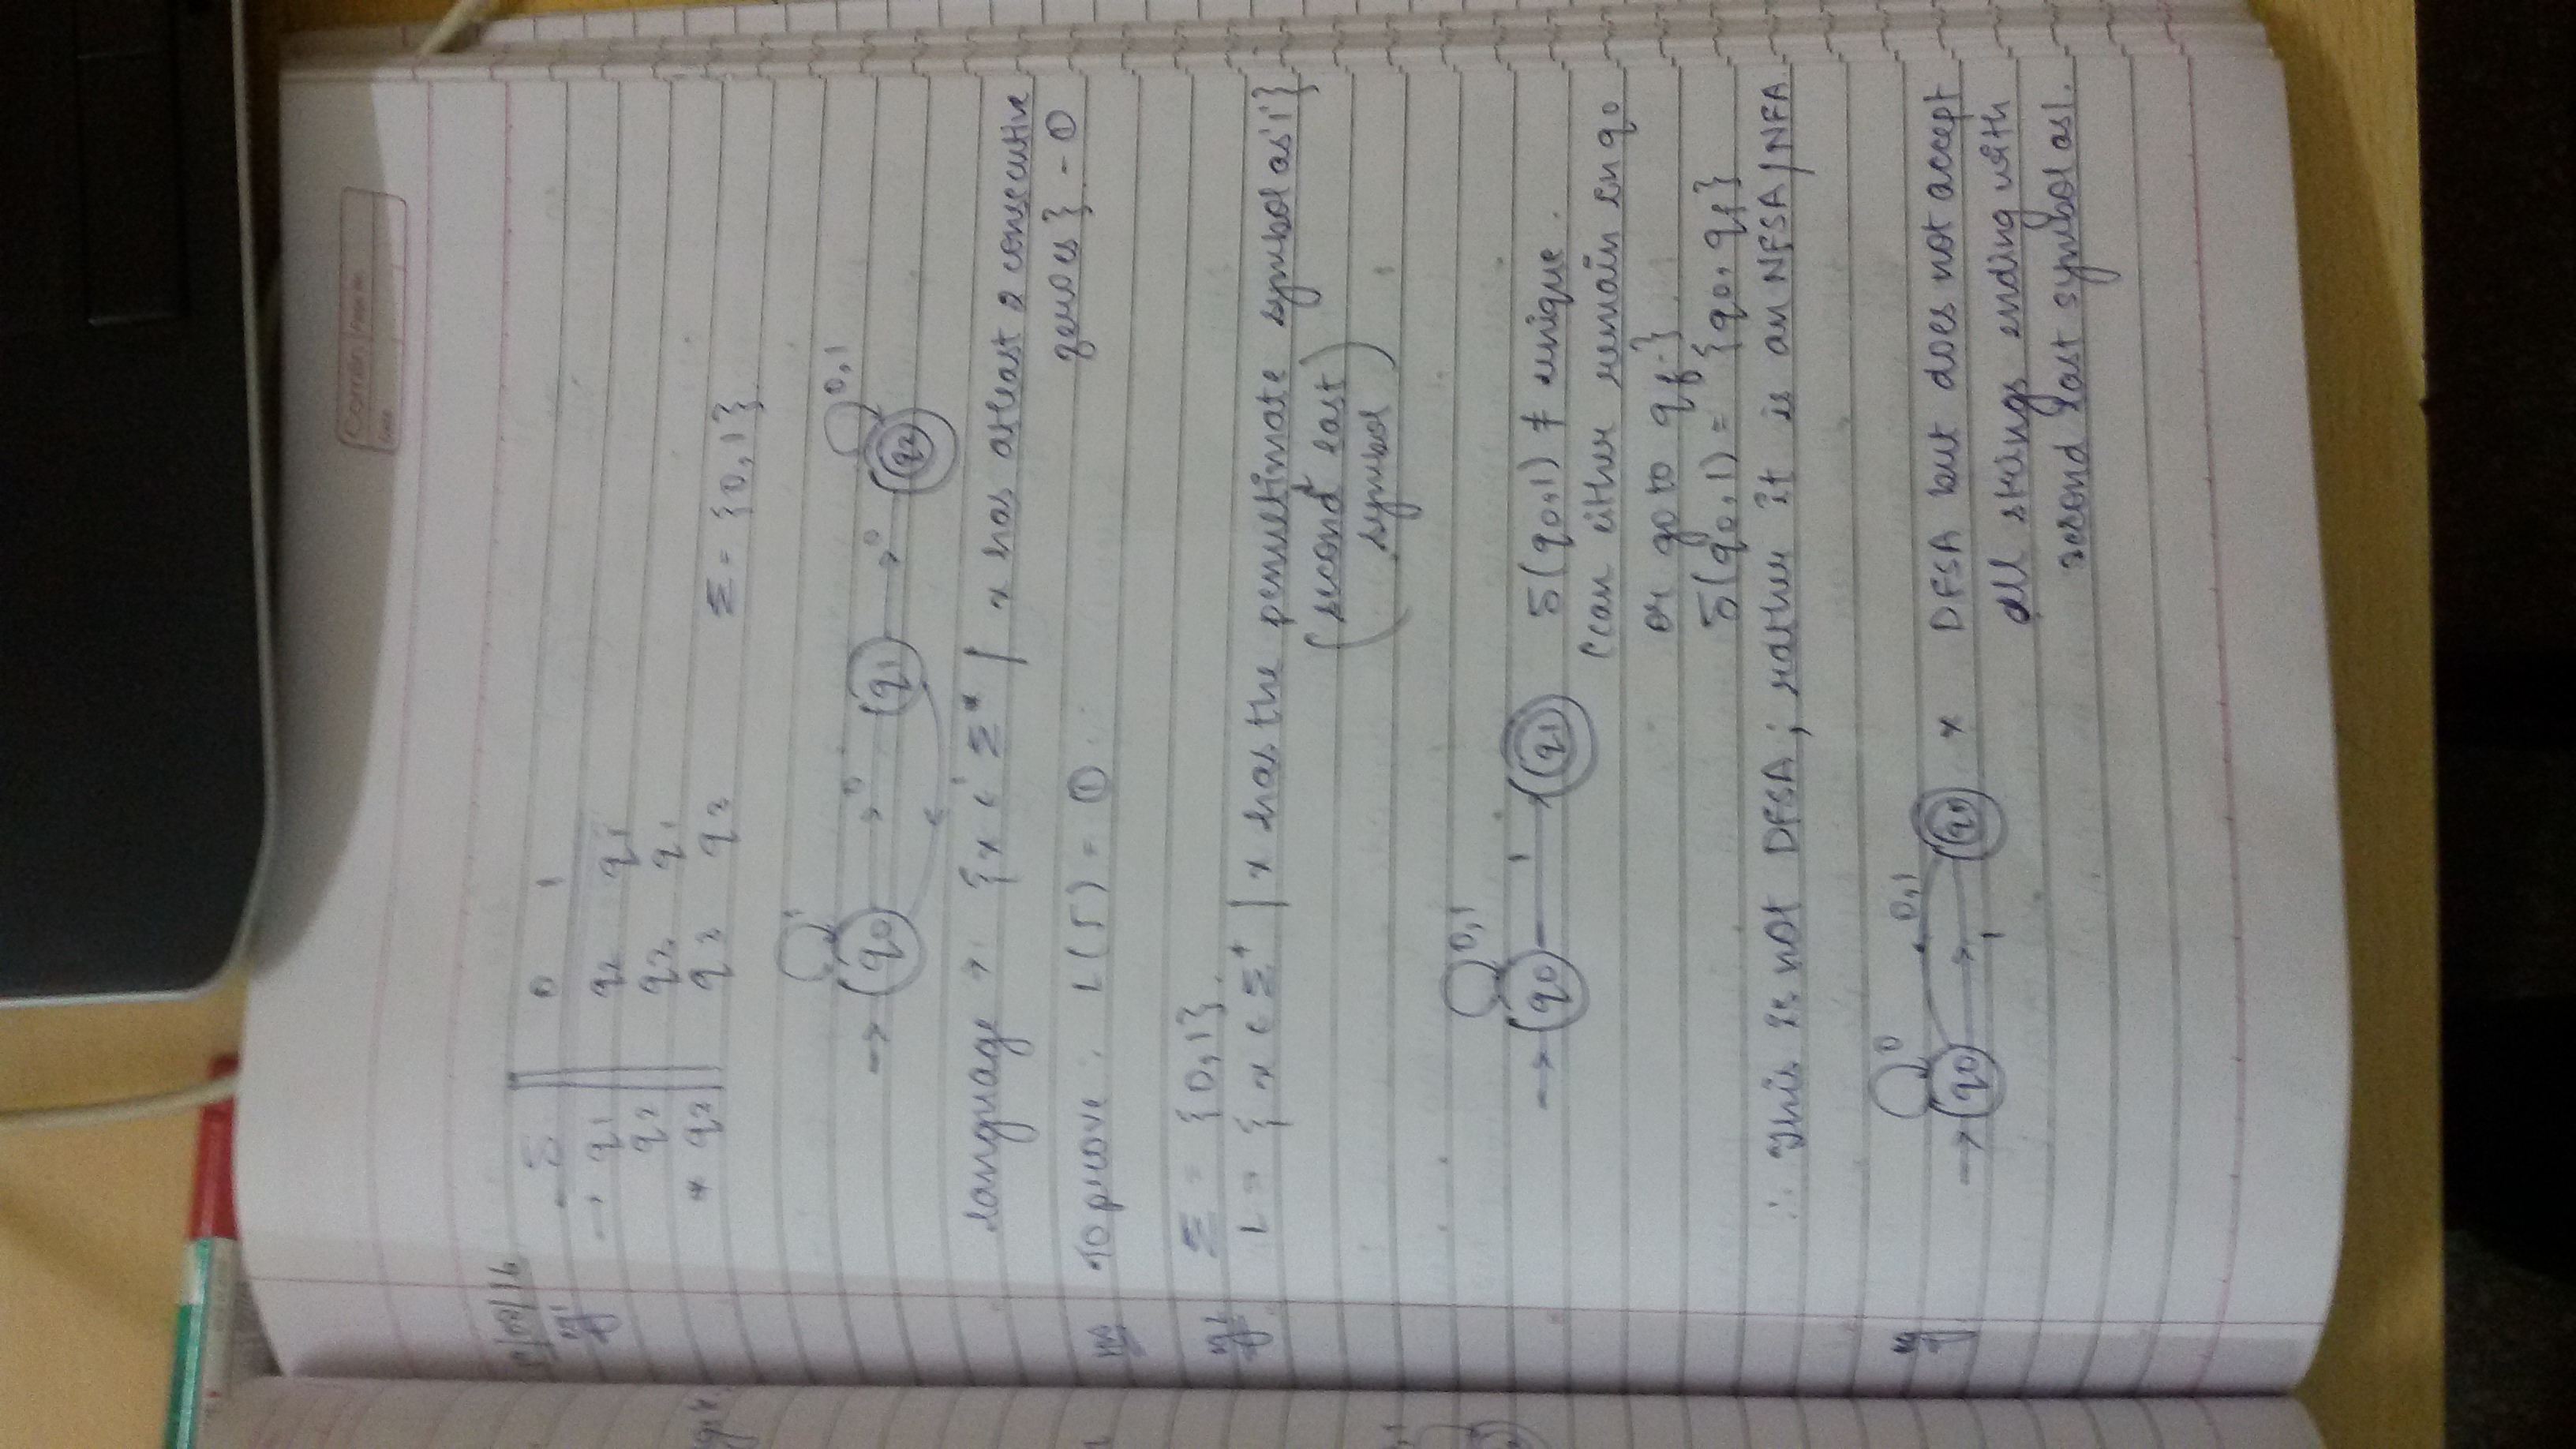 /08/16
δ 0 1
eg1 → q1 q2 q1
q2 q3 q1
* q3 q3 q3 Σ = {0,1}
1 0,1
→ q0 → 0 q1 → 0 q2
1
language → {x ∈ Σ* | x has atleast 2 consecutive
zeroes} - ①
HW To prove: L(S) = ①
eg2 Σ = {0,1}.
L = {x ∈ Σ+ | x has the penultimate symbol as '1'}
(second last
symbol)
0,1
→ q0 1 q1 δ(q0,1) ≠ unique.
(can either remain in q0
or go to qf.}
δ(q0,1) = {q0, qf}
∴ This is not DFSA; rather it is an NFSA/NFA
eg 0 0,1
→ q0 1 q1 x DFSA but does not accept
all strings ending with
second last symbol as 1.